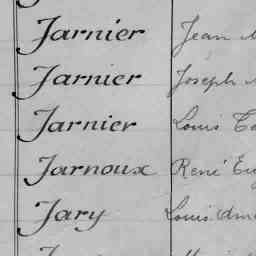 Jarnier Jean
Jarnier Joseph
Jarnier Louis
Jarnoux René
Jary Louis